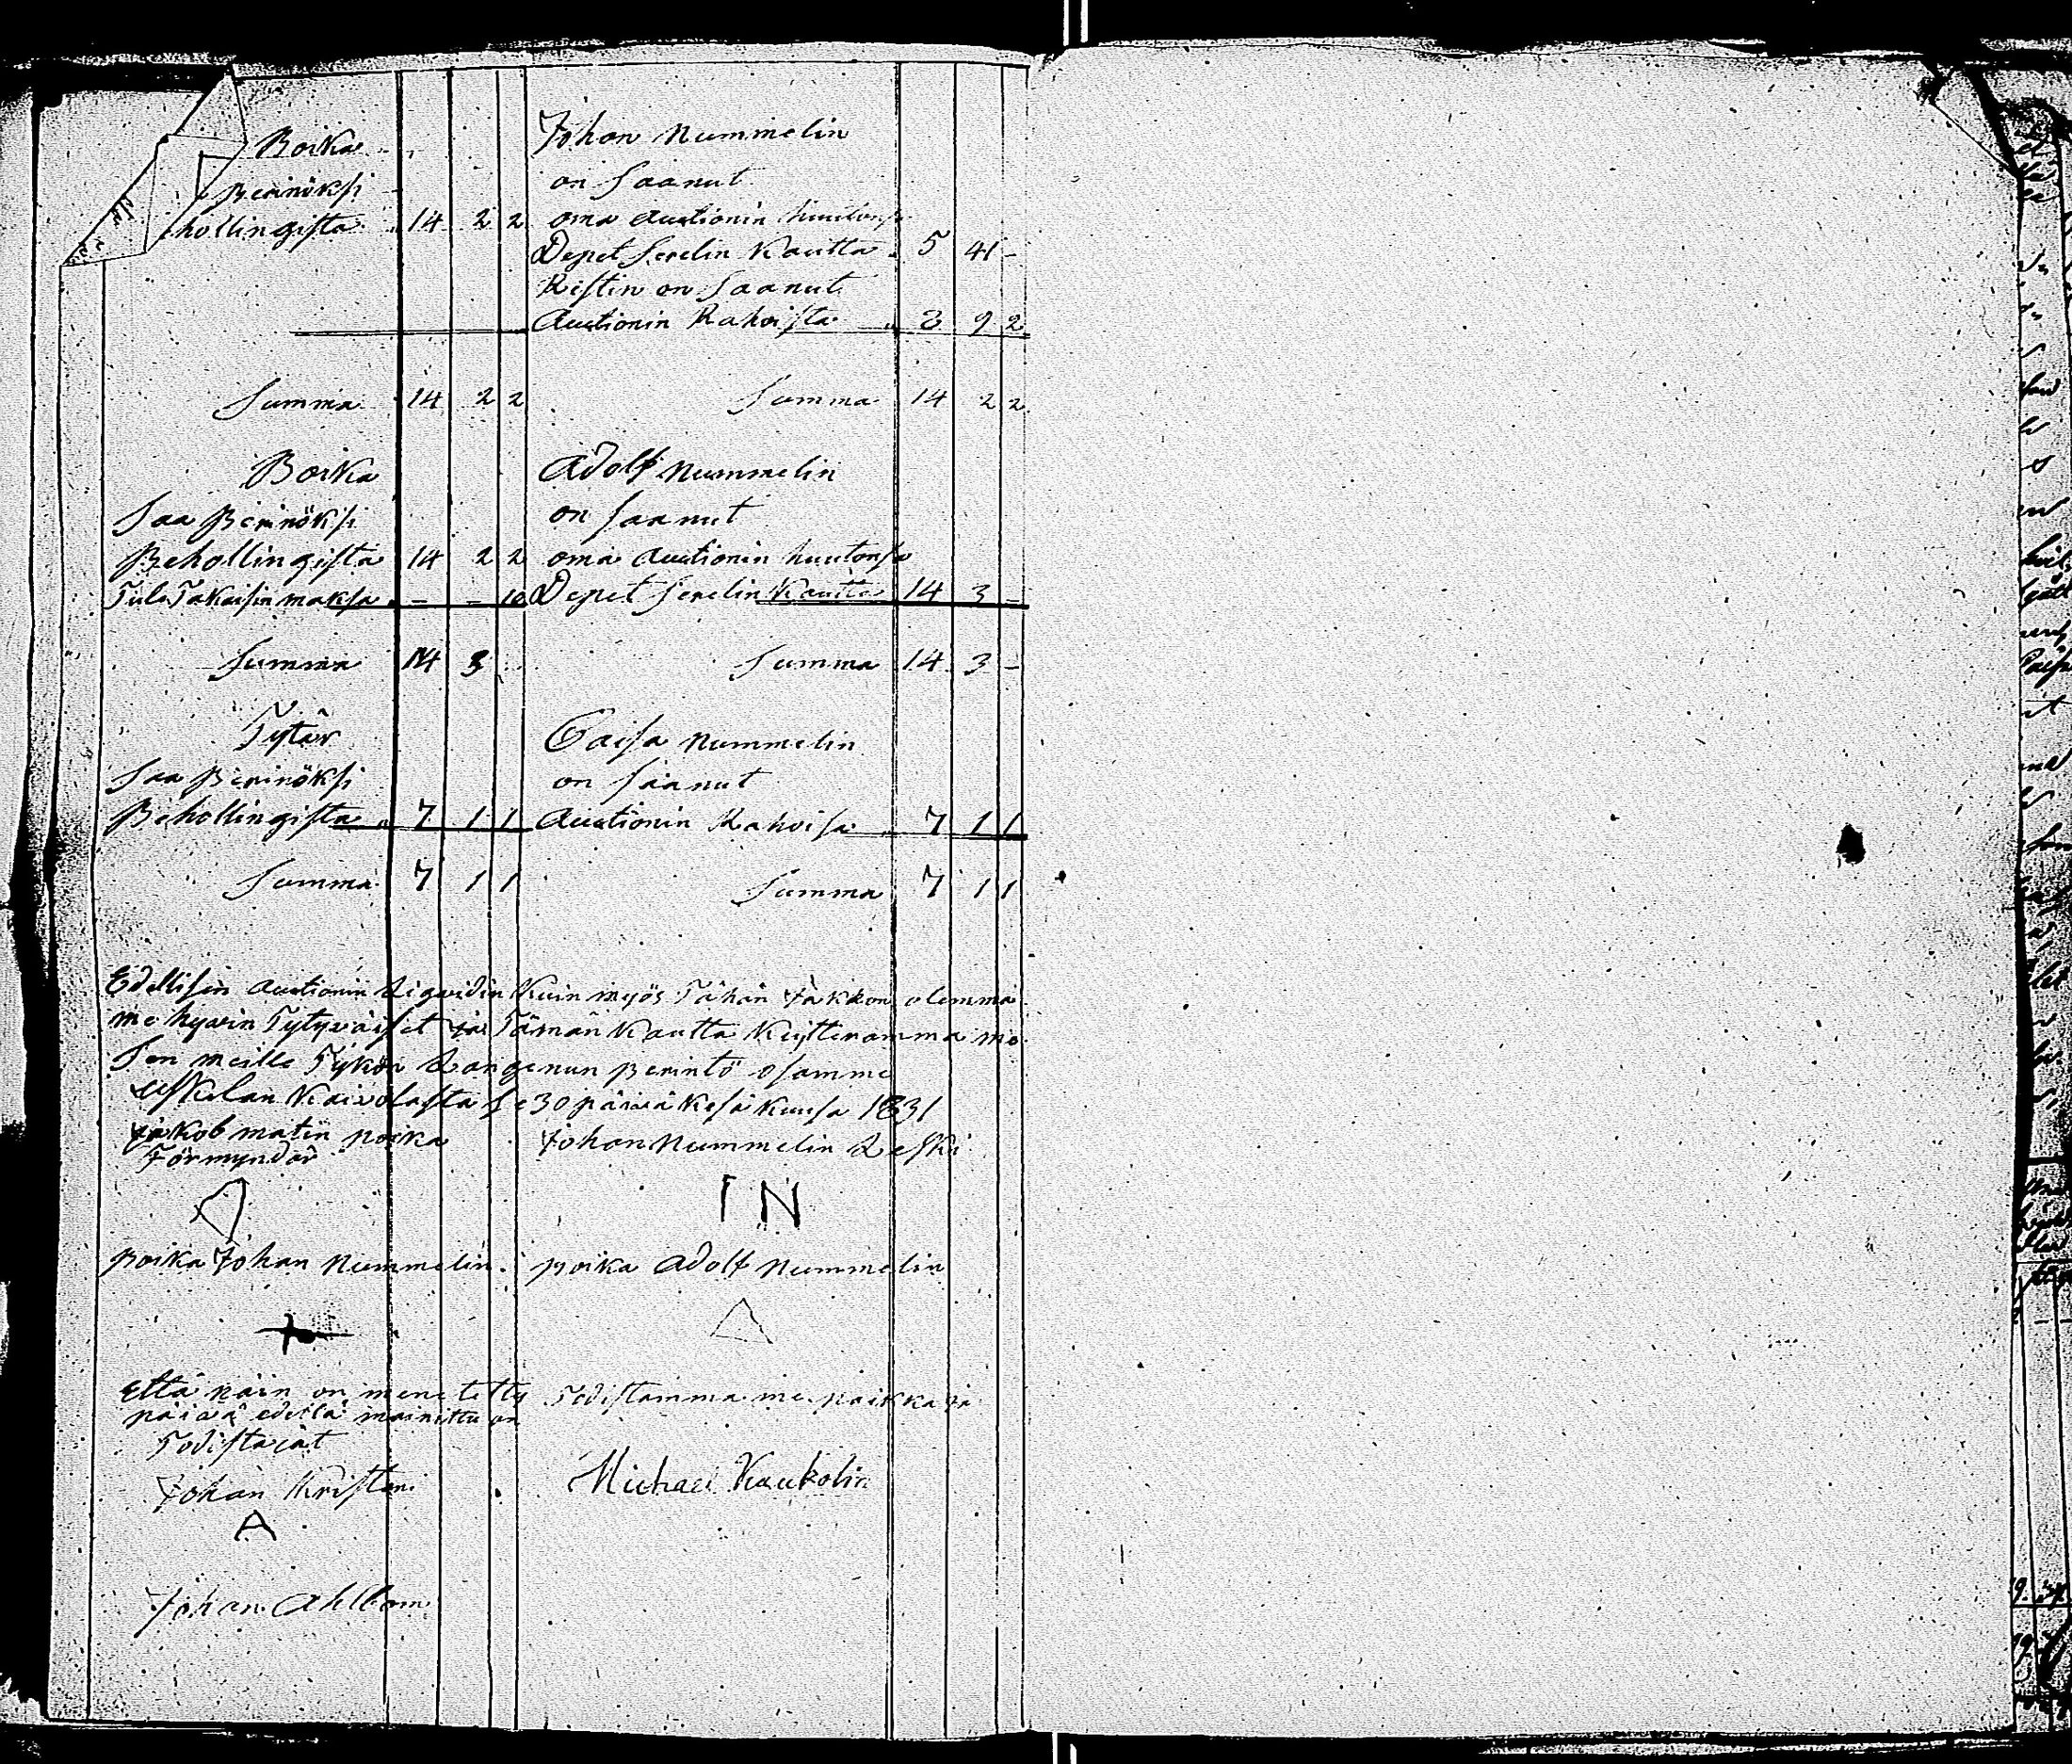 Poika Johan Nummelin
Perinöksi on saanut
hollingista 14 2 2 oma auctionin huutonsa
Depet Serelin Kautta 5 41 -
Ristin on saanut
Auctionin Rahoista 8 9 2
Summa 14 2 2 Summa 14 2 2
Poika Adolf Nummelin
Saa Perinöksi on saanut
Behollingista 14 2 2 oma auctionin huutonsa
Tule Takaisin maksa - - 10 Depet Serelin Kautta 14 3 -
Summa 14 3 Summa 14 3 -
Tytär Caisa Nummelin
Saa Perinöksi on saanut
Behollingista 7 1 1 Auctionin Rahoisa 7 1 1
Summa 7 1 1 Summa 7 1 1
Edellisin Auctionin Liqvidin Kuin myös Tähän Jakkon olemma
me hyvin Tytyväiset ja Tämän Kautta Kuitteramma me
Sen meille Tykön Langenun perintö osamme
Uskelan Kaivolasta se 30 päivä kesäkuusa 1831
Jakob matin poika Johan Nummelin Leski
Förmyndär
I N
poika Johan Nummelin. poika Adolf Nummelin
Että näin on menetetty Todistamma me paikka ja
päivä edellä mainittu on
Todistavat
Johan Kristeri Michael Kaukolin
A
Johan Ahlbom